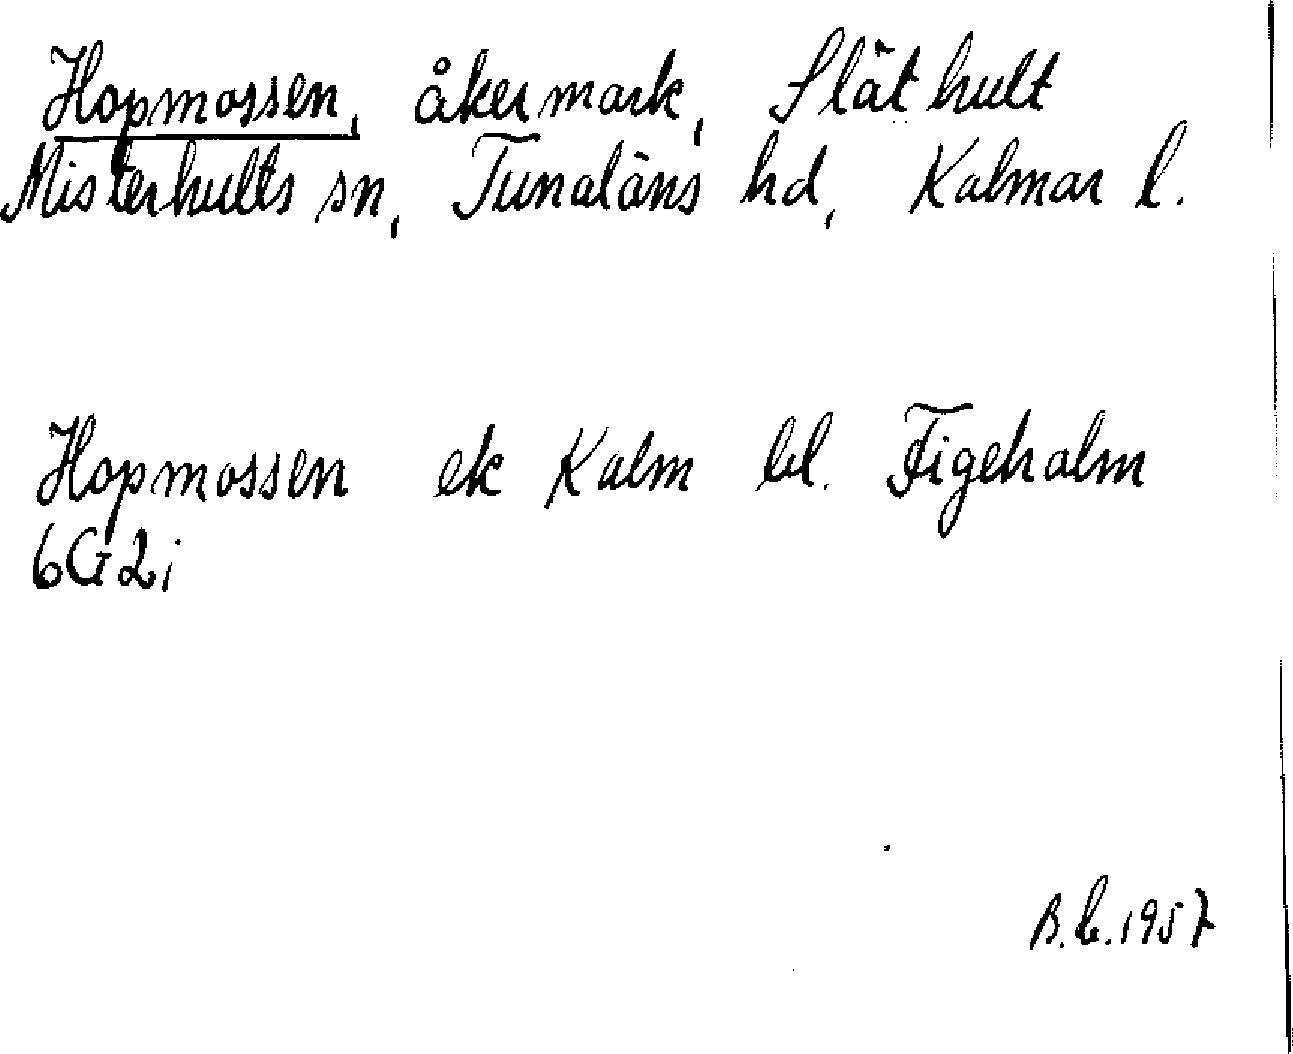 Hopmossen, åkermark, Slät hult
Misterhults sn, Tunaläns hd, Kalmar l.
Hopmossen ek Kalm bl. Figeholm
6G2i
B.C. 1957